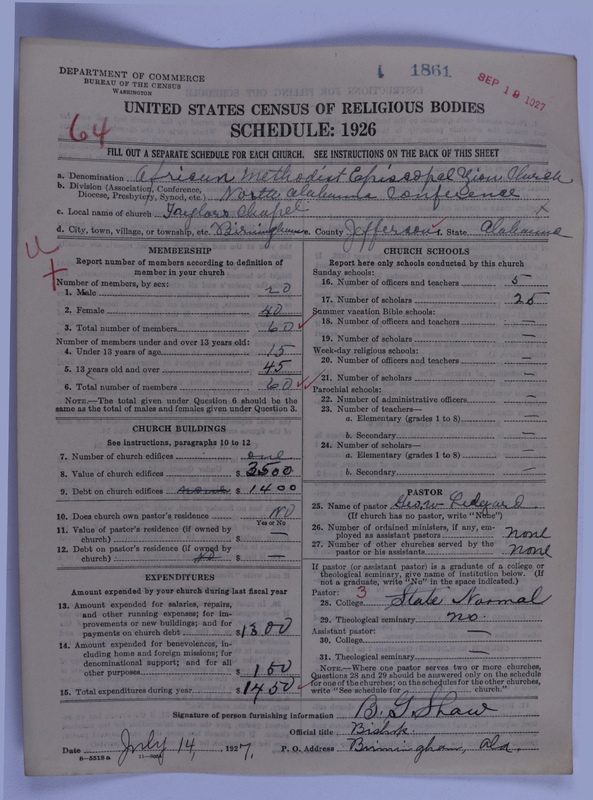 1861
SEP 19 1927
DEPARTMENT OF COMMERCE
BUREAU OF THE CENSUS
WASHINGTON
UNITED STATES CENSUS OF RELIGIOUS BODIES
SCHEDULE: 1926
64
FILL OUT A SEPARATE SCHEDULE FOR EACH CHURCH. SEE INSTRUCTIONS ON THE BACK OF THIS SHEET
a. Denomination African Methodist Episcopal Zion Church
b. Division (Association, Conference, Diocese, Presbytery, Synod, etc.) North Alabama Conference
c. Local name of church Taylors Chapel x
d. City, town, village, or township, etc. Birmingham e. County Jefferson f. State Alabama
MEMBERSHIP
Report number of members according to definition of
member in your church
Number of members, by sex:
1. Male 20
2. Female 40
3. Total number of members 60
Number of members under and over 13 years old:
4. Under 13 years of age 15
5. 13 years old and over 45
6. Total number of members 60
NOTE.—The total given under Question 6 should be the
same as the total of males and females given under Question 3.
CHURCH BUILDINGS
See instructions, paragraphs 10 to 12
7. Number of church edifices one
8. Value of church edifices $ 3500
9. Debt on church edifices $ 1400
10. Does church own pastor's residence? NO
Yes or No
11. Value of pastor's residence (if owned by
church) $ —
12. Debt on pastor's residence (if owned by
church) $ —
EXPENDITURES
Amount expended by your church during last fiscal year
13. Amount expended for salaries, repairs,
and other running expenses; for im-
provements or new buildings; and for
payments on church debt $ 1300
14. Amount expended for benevolences, in-
cluding home and foreign missions; for
denominational support; and for all
other purposes $ 150
15. Total expenditures during year $ 1450
CHURCH SCHOOLS
Report here only schools conducted by this church
Sunday schools:
16. Number of officers and teachers 5
17. Number of scholars 25
Summer vacation Bible schools:
18. Number of officers and teachers —
19. Number of scholars —
Week-day religious schools:
20. Number of officers and teachers —
21. Number of scholars —
Parochial schools:
22. Number of administrative officers —
23. Number of teachers—
a. Elementary (grades 1 to 8) —
b. Secondary —
24. Number of scholars—
a. Elementary (grades 1 to 8) —
b. Secondary —
PASTOR
25. Name of pastor Geo. W.
(If church has no pastor, write "None")
26. Number of ordained ministers, if any, em-
ployed as assistant pastors none
27. Number of other churches served by the
pastor or his assistants none
If pastor (or assistant pastor) is a graduate of a college or
theological seminary, give name of institution below. (If
not a graduate, write "No" in the space indicated.)
Pastor: 3
28. College State Normal
29. Theological seminary no.
Assistant pastor:
30. College —
31. Theological seminary —
NOTE.—Where one pastor serves two or more churches,
Questions 28 and 29 should be answered only on the schedule
for one of the churches; on the schedules for the other churches,
write "See schedule for church."
Signature of person furnishing information B. G. Shaw
Official title Bishop.
Date July 14, 1927. P. O. Address Birmingham, Ala.
8-3318a